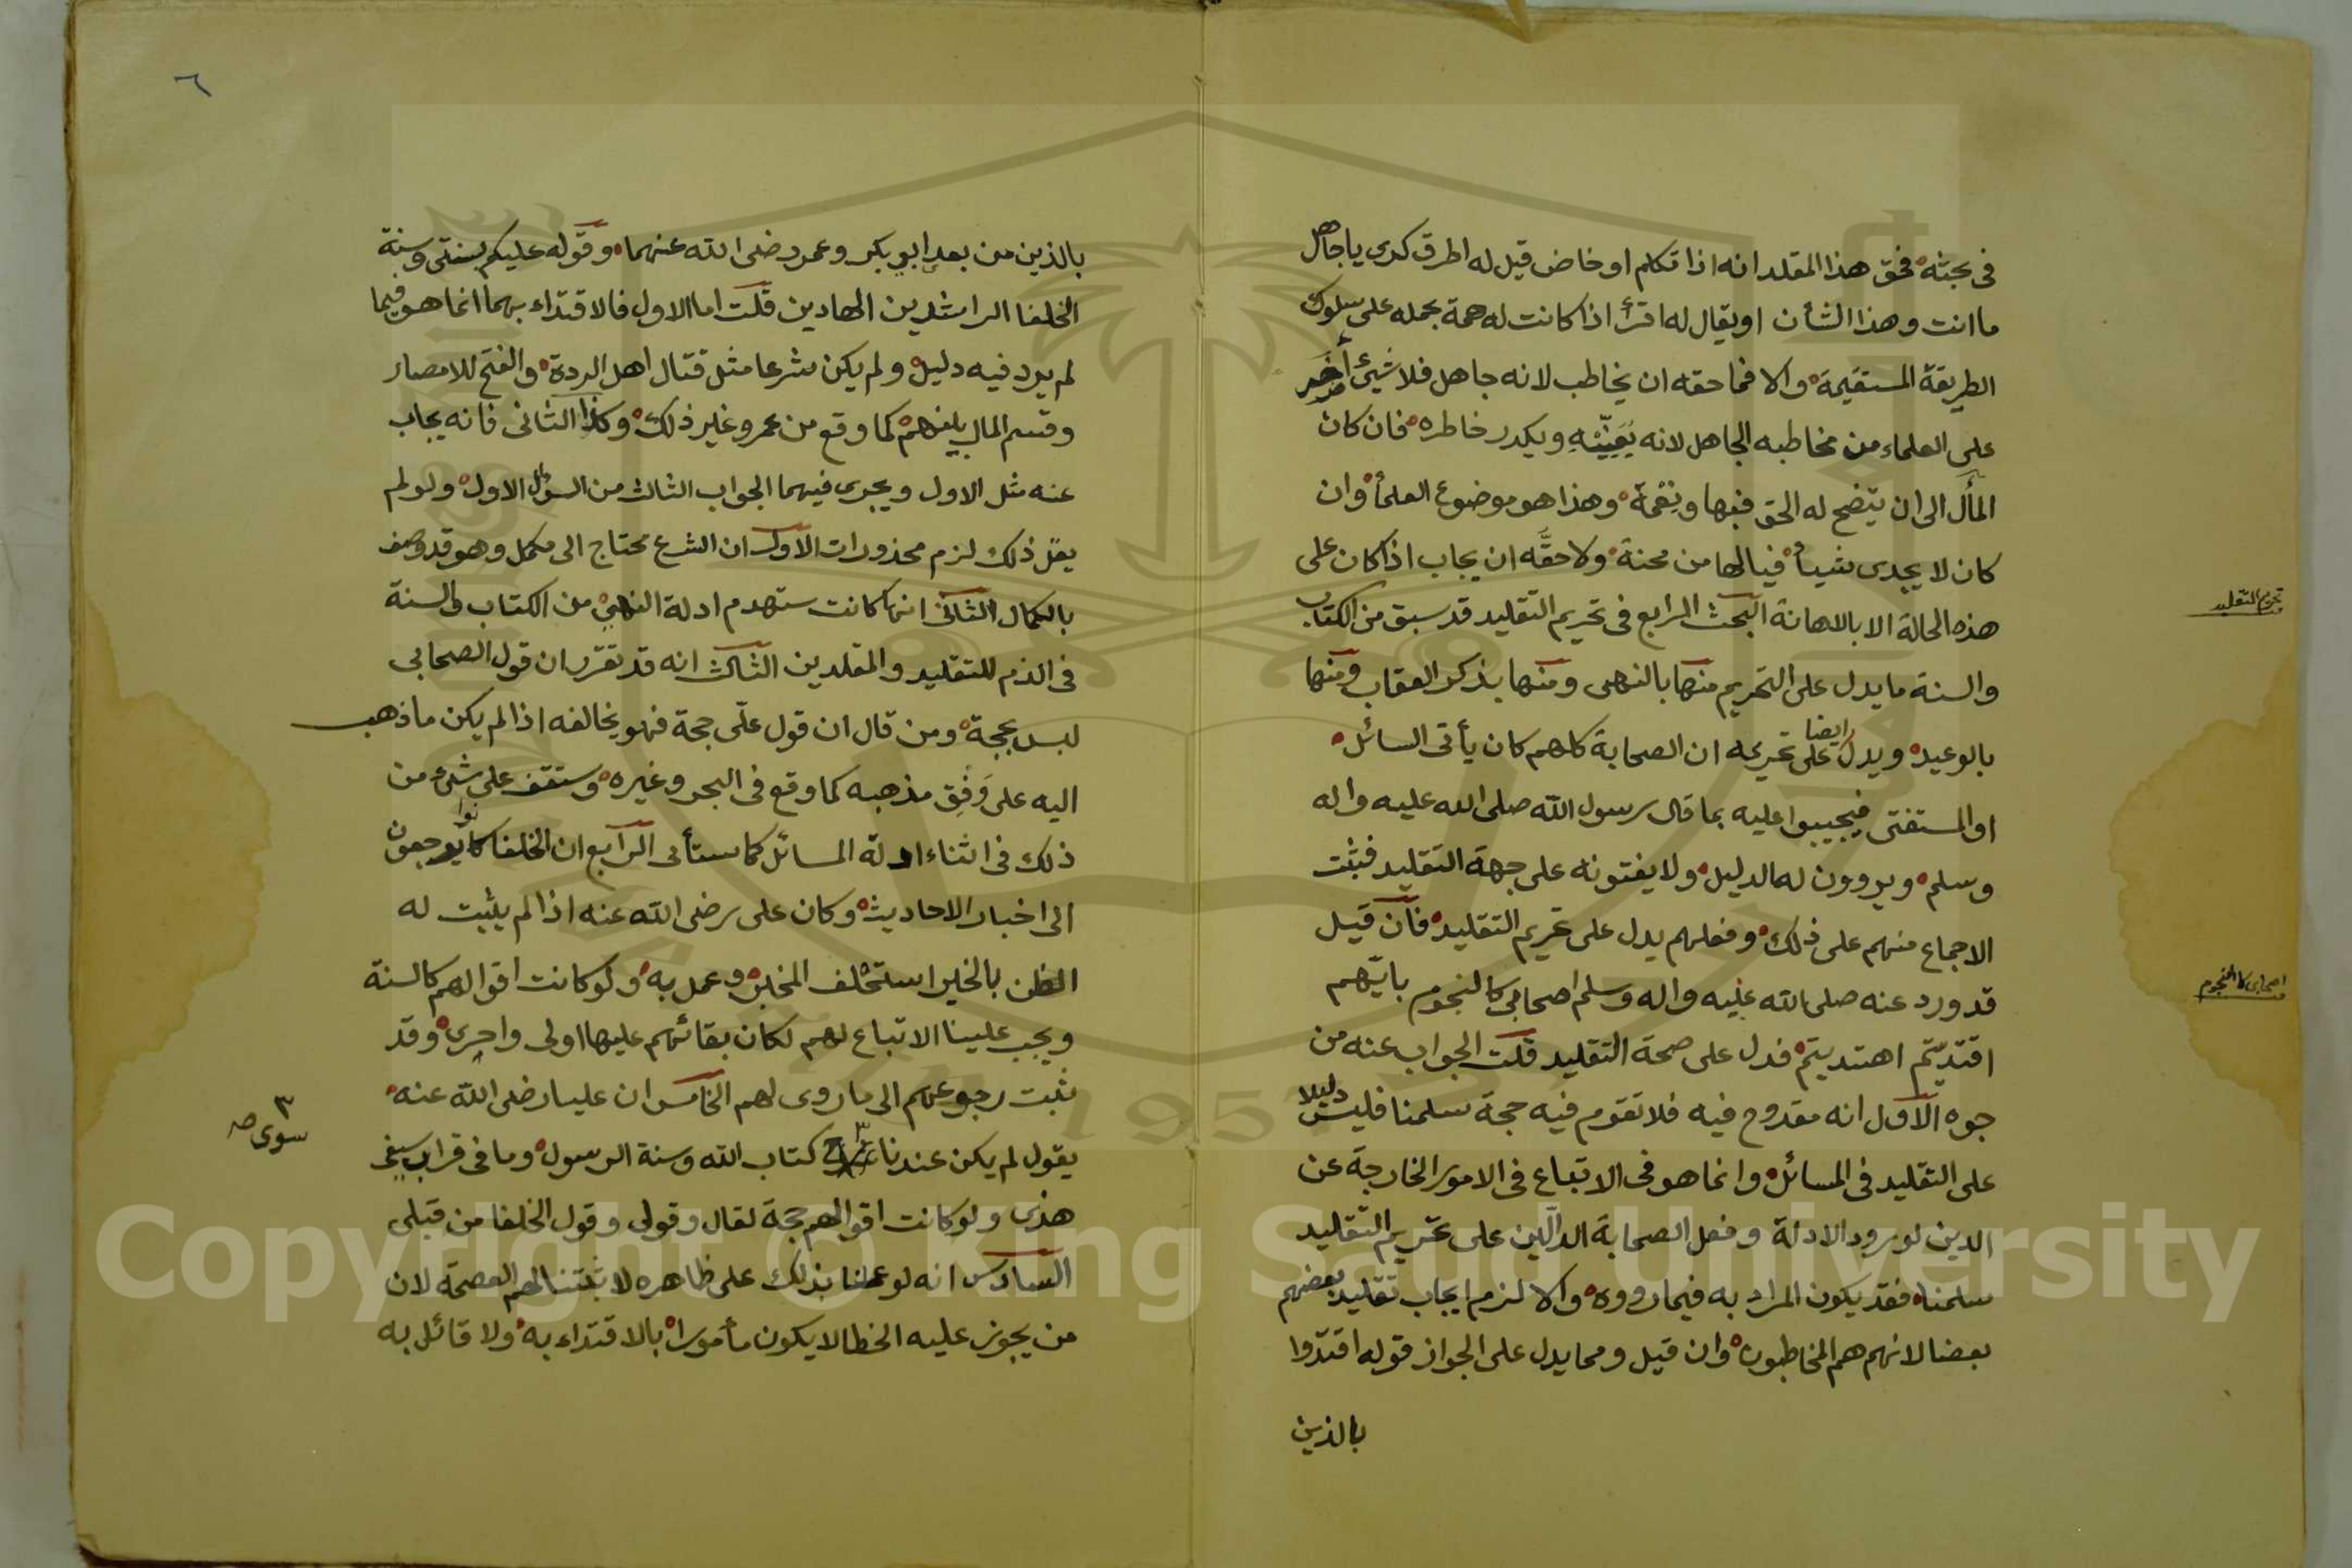 في بحثه فحق هذا المقلد انه اذا تكلم او خاض قيل له اطرق كرى يا جاهل
ما انت وهذا الشأن او يقال له اقرأ اذا كانت له همة بحمله على سلوك
الطريقة المستقيمة والا فما حقه ان يخاطب لانه جاهل فلا شيئ أضر
على العلماء من مخاطبه الجاهل لانه ويكدر خاطره فان كان
المأل الى ان يتضح له الحق فبها ونعمة وهذا هو موضوع العلمأ وان
كان لا يجدى شيأ فيالها من محنة ولا حقه ان يجاب اذا كان على
هذه الحالة الا بالاهانة البحث الرابع في تحريم التقليد قد سبق من الكتاب
والسنة ما يدل على التحريم منها بالنهى ومنها بذكر العقاب ومنها
بالوعيد ويدل ايضا على تحريمه ان الصحابة كلهم كان يأتى السائل
او المستفتى فيجيبوا عليه بما قال رسول الله صلى الله عليه واله
وسلم ويروون له الدليل ولا يفتونه على جهة التقليد فثبت
الاجماع منهم على ذلك وفعلهم يدل على تحريم التقليد فان قيل
قد ورد عنه صلى الله عليه واله وسلم اصحابي كالنجوم بايهم
اقتديتم اهتديتم فدل على صحة التقليد قلت الجواب عنه من
جوه الاول انه مقدوح فيه فلا تقوم فيه حجة سلمنا فليس دليلا
على التقليد في المسائل وانما هو في الاتباع في الامور الخارجة عن
الدين لورود الادلة وفعل الصحابة الدالين على تحريم التقليد
سلمنا فقد يكون المراد به فيما رووه والا لزم ايجاب تقليد بعضهم
بعضا لانهم هم المخاطبون وان قيل ومما يدل على الجواز قوله اقتدوا
بالذين
تحريم التقليد
اصحابى كالنجوم
٦
بالذين من بعد ابو بكر وعمر رضى الله عنهما وقوله عليكم بسنتى وسنة
الخلفا الراشدين الهادين قلت اما الاول فالاقتداء بهما انما هو فيما
لم يرد فيه دليل ولم يكن شرعا مثل قتال اهل الردة والفتح للامصار
وقسم المال بينهم كما وقع من عمر وغير ذلك وكذا الثانى فانه يجاب
عنه مثل الاول ويجرى فيهما الجواب الثالث من السؤال الاول ولو لم
يقل ذلك لزم محذورات الاول ان الشرع محتاج الى مكمل وهو قد وصف
بالكمال الثانى انها كانت ستهدم ادلة النهى من الكتاب والسنة
في الذم للتقليد والمقلدين الثالث انه قد تقرر ان قول الصحابي
ليس بحجة ومن قال ان قول على حجة فهو يخالفه اذا لم يكن ما ذهب
اليه على وفق مذهبه كما وقع في البحر وغيره وستقف على شئ من
ذلك في اثناء ادلة المسائل كما ستأتى الرابع ان الخلفا كانوا يرجعون
الى اخبار الاحاديث وكان على رضى الله عنه اذا لم يثبت له
الظن بالخبر استحلف المخبر وعمل به ولو كانت اقوالهم كالسنة
ويجب علينا الاتباع لهم لكان بقائهم عليها اولى واحرى وقد
ثبت رجوعهم الى ما روى لهم الخامس ان عليا رضى الله عنه
يقول لم يكن عندنا كتاب الله وسنة الرسول وما في قراب سيفى
هذى ولو كانت اقوالهم حجة لقال وقولى وقول الخلفا من قبلى
السادس انه لو عملنا بذلك على ظاهره لا ثبتنا لهم العصمة لان
من يجوز عليه الخطا لا يكون مأمورا بالاقتداء به ولا قائل به
٣
سوى صح
Copyright © King Saud University